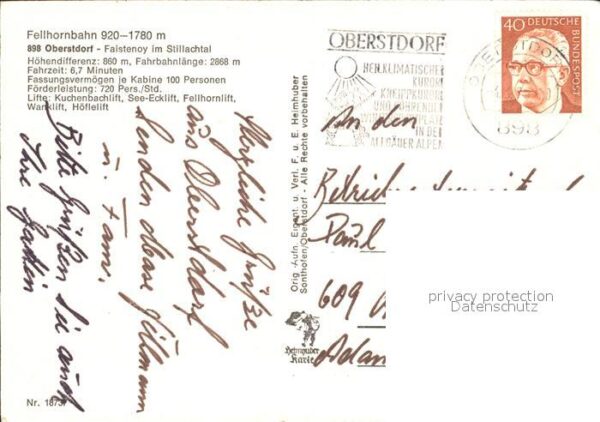 Fellhornbahn 920–1780 m
898 Oberstdorf - Faistenoy im Stillachtal
Höhendifferenz: 860 m, Fahrbahnlänge: 2868 m
Fahrzeit: 6,7 Minuten
Fassungsvermögen je Kabine 100 Personen
Förderleistung: 720 Pers./Std.
Lifte: Kuchenbachlift, See-Ecklift, Fellhornlift,
Wanklift, Höflelift
Herzliche Grüße
aus Oberstdorf
senden
u. Fam.
Bitte grüßen Sie auch
Ihre Gattin
Nr. 1873
Orig.-Aufn. Eigent. u. Verl. F. u. E. Heimhuber
Sonthofen/Oberstdorf - Alle Rechte vorbehalten
Heimhuber
Karte
OBERSTDORF
HEILKLIMATISCHER
KURORT
KNEIPPKURORT
IN DEN
ALLGÄUER ALPEN
OBERSTDORF
898
40 DEUTSCHE
BUNDESPOST
An den
Paul
609
privacy protection
Datenschutz